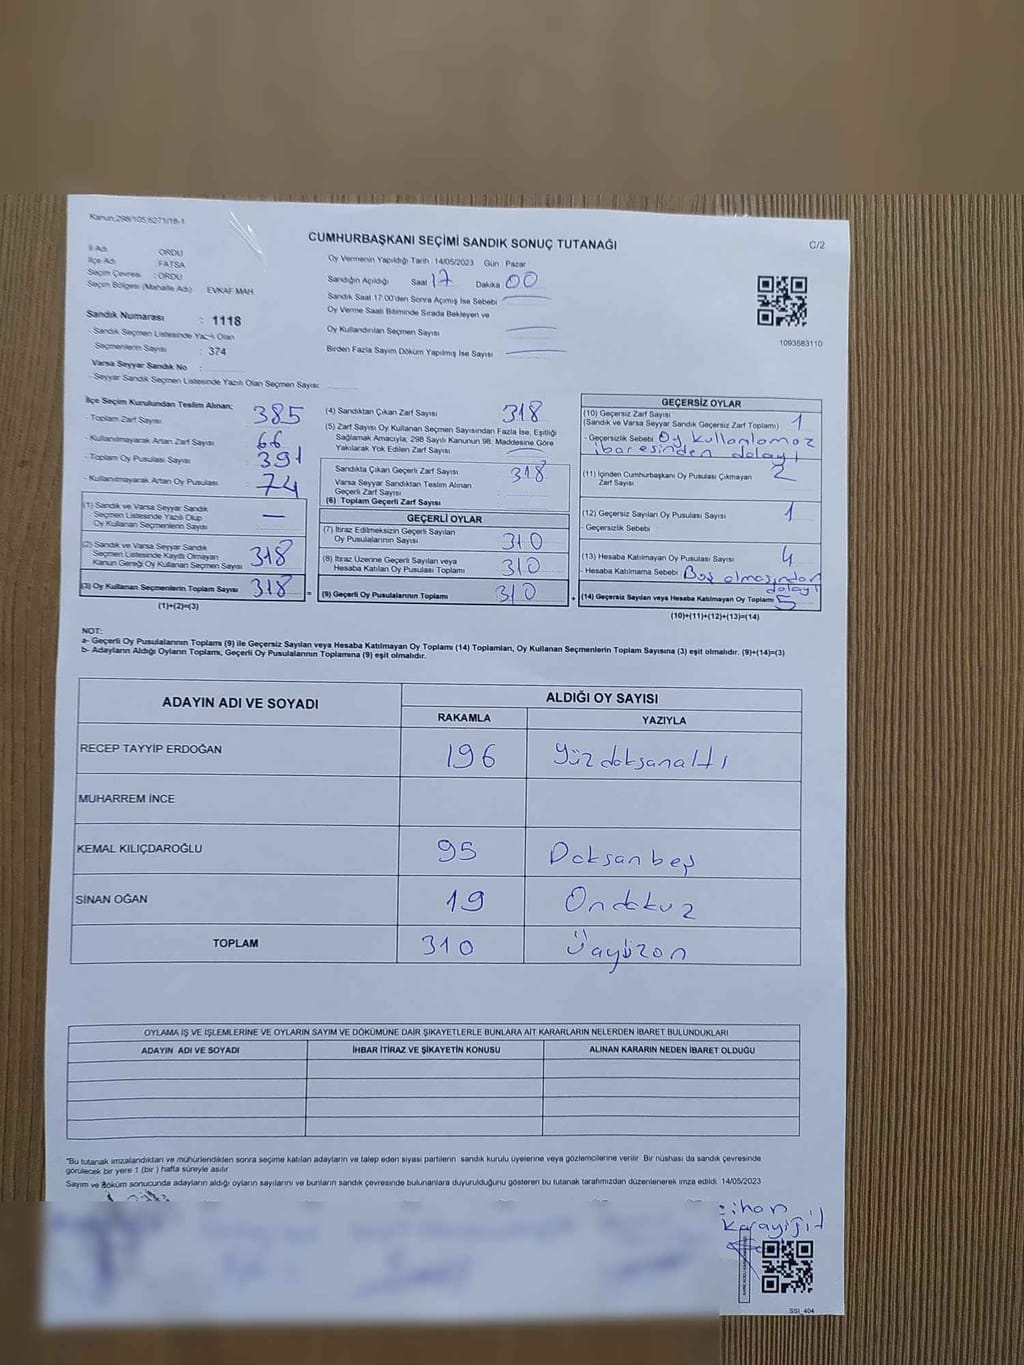 Kanun;298/105;6271/18-1
CUMHURBAŞKANI SEÇİMİ SANDIK SONUÇ TUTANAĞI
C/2
İl Adı ORDU
İlçe Adı FATSA
Seçim Çevresi : ORDU
Seçim Bölgesi (Mahalle Adı) EVKAF MAH
Sandık Numarası : 1118
- Sandık Seçmen Listesinde Yazılı Olan
Seçmenlerin Sayısı : 374
Varsa Seyyar Sandık No :
- Seyyar Sandık Seçmen Listesinde Yazılı Olan Seçmen Sayısı:
Oy Vermenin Yapıldığı Tarih 14/05/2023 Gün Pazar
Sandığın Açıldığı Saat 17 Dakika 00
Sandık Saat 17 00'den Sonra Açımış İse Sebebi
Oy Verme Saati Bitiminde Sırada Bekleyen ve
Oy Kullandırılan Seçmen Sayısı
Birden Fazla Sayım Döküm Yapılmış İse Sayısı
1093583110
İlçe Seçim Kurulundan Teslim Alınan;
- Toplam Zarf Sayısı 385
- Kullanılmayarak Artan Zarf Sayısı 66
- Toplam Oy Pusulası Sayısı 391
- Kullanılmayarak Artan Oy Pusulası 74
(1) Sandık ve Varsa Seyyar Sandık
Seçmen Listesinde Yazılı Olup
Oy Kullanan Seçmenlerin Sayısı —
(2) Sandık ve Varsa Seyyar Sandık
Seçmen Listesinde Kayıtlı Olmayan
Kanun Gereği Oy Kullanan Seçmen Sayısı 318
(3) Oy Kullanan Seçmenlerin Toplam Sayısı 318 =
(1)+(2)=(3)
(4) Sandıktan Çıkan Zarf Sayısı 318
(5) Zarf Sayısı Oy Kullanan Seçmen Sayısından Fazla İse, Eşitliği
Sağlamak Amacıyla, 298 Sayılı Kanunun 98. Maddesine Göre
Yakılarak Yok Edilen Zarf Sayısı
Sandıkta Çıkan Geçerli Zarf Sayısı 318
Varsa Seyyar Sandıktan Teslim Alınan
Geçerli Zarf Sayısı
(6) Toplam Geçerli Zarf Sayısı
GEÇERLİ OYLAR
(7) İtiraz Edilmeksizin Geçerli Sayılan
Oy Pusulalarının Sayısı 310
(8) İtiraz Üzerine Geçerli Sayılan veya
Hesaba Katılan Oy Pusulası Toplamı 310
(9) Geçerli Oy Pusulalarının Toplamı 310 +
GEÇERSİZ OYLAR
(10) Geçersiz Zarf Sayısı
(Sandık ve Varsa Seyyar Sandık Geçersiz Zarf Toplamı) 1
- Geçersizlik Sebebi Oy kullanılamaz
ibaresinden dolayı
(11) İçinden Cumhurbaşkanı Oy Pusulası Çıkmayan
Zarf Sayısı 2
(12) Geçersiz Sayılan Oy Pusulası Sayısı 1
- Geçersizlik Sebebi
(13) Hesaba Katılmayan Oy Pusulası Sayısı 4
- Hesaba Katılmama Sebebi Boş olmasından
dolayı
(14) Geçersiz Sayılan veya Hesaba Katılmayan Oy Toplamı 5
(10)+(11)+(12)+(13)=(14)
NOT:
a- Geçerli Oy Pusulalarının Toplamı (9) ile Geçersiz Sayılan veya Hesaba Katılmayan Oy Toplamı (14) Toplamları, Oy Kullanan Seçmenlerin Toplam Sayısına (3) eşit olmalıdır. (9)+(14)=(3)
b- Adayların Aldığı Oyların Toplamı, Geçerli Oy Pusulalarının Toplamına (9) eşit olmalıdır.
ADAYIN ADI VE SOYADI ALDIĞI OY SAYISI
RAKAMLA YAZIYLA
RECEP TAYYİP ERDOĞAN 196 Yüzdoksanaltı
MUHARREM İNCE
KEMAL KILIÇDAROĞLU 95 Doksanbeş
SİNAN OĞAN 19 Ondokuz
TOPLAM 310 Üçyüzon
OYLAMA İŞ VE İŞLEMLERİNE VE OYLARIN SAYIM VE DÖKÜMÜNE DAİR ŞİKAYETLERLE BUNLARA AİT KARARLARIN NELERDEN İBARET BULUNDUKLARI
ADAYIN ADI VE SOYADI İHBAR İTİRAZ VE ŞİKAYETİN KONUSU ALINAN KARARIN NEDEN İBARET OLDUĞU
"Bu tutanak imzalandıktan ve mühürlendikten sonra seçime katılan adayların ve talep eden siyasi partilerin sandık kurulu üyelerine veya gözlemcilerine verilir Bir nüshası da sandık çevresinde
görülecek bir yere 1 (bir ) hafta süreyle asılır
Sayım ve döküm sonucunda adayların aldığı oyların sayılarını ve bunların sandık çevresinde bulunanlara duyurulduğunu gösteren bu tutanak tarafımızdan düzenlenerek imza edildi. 14/05/2023
Karayiğit
SSİ_404